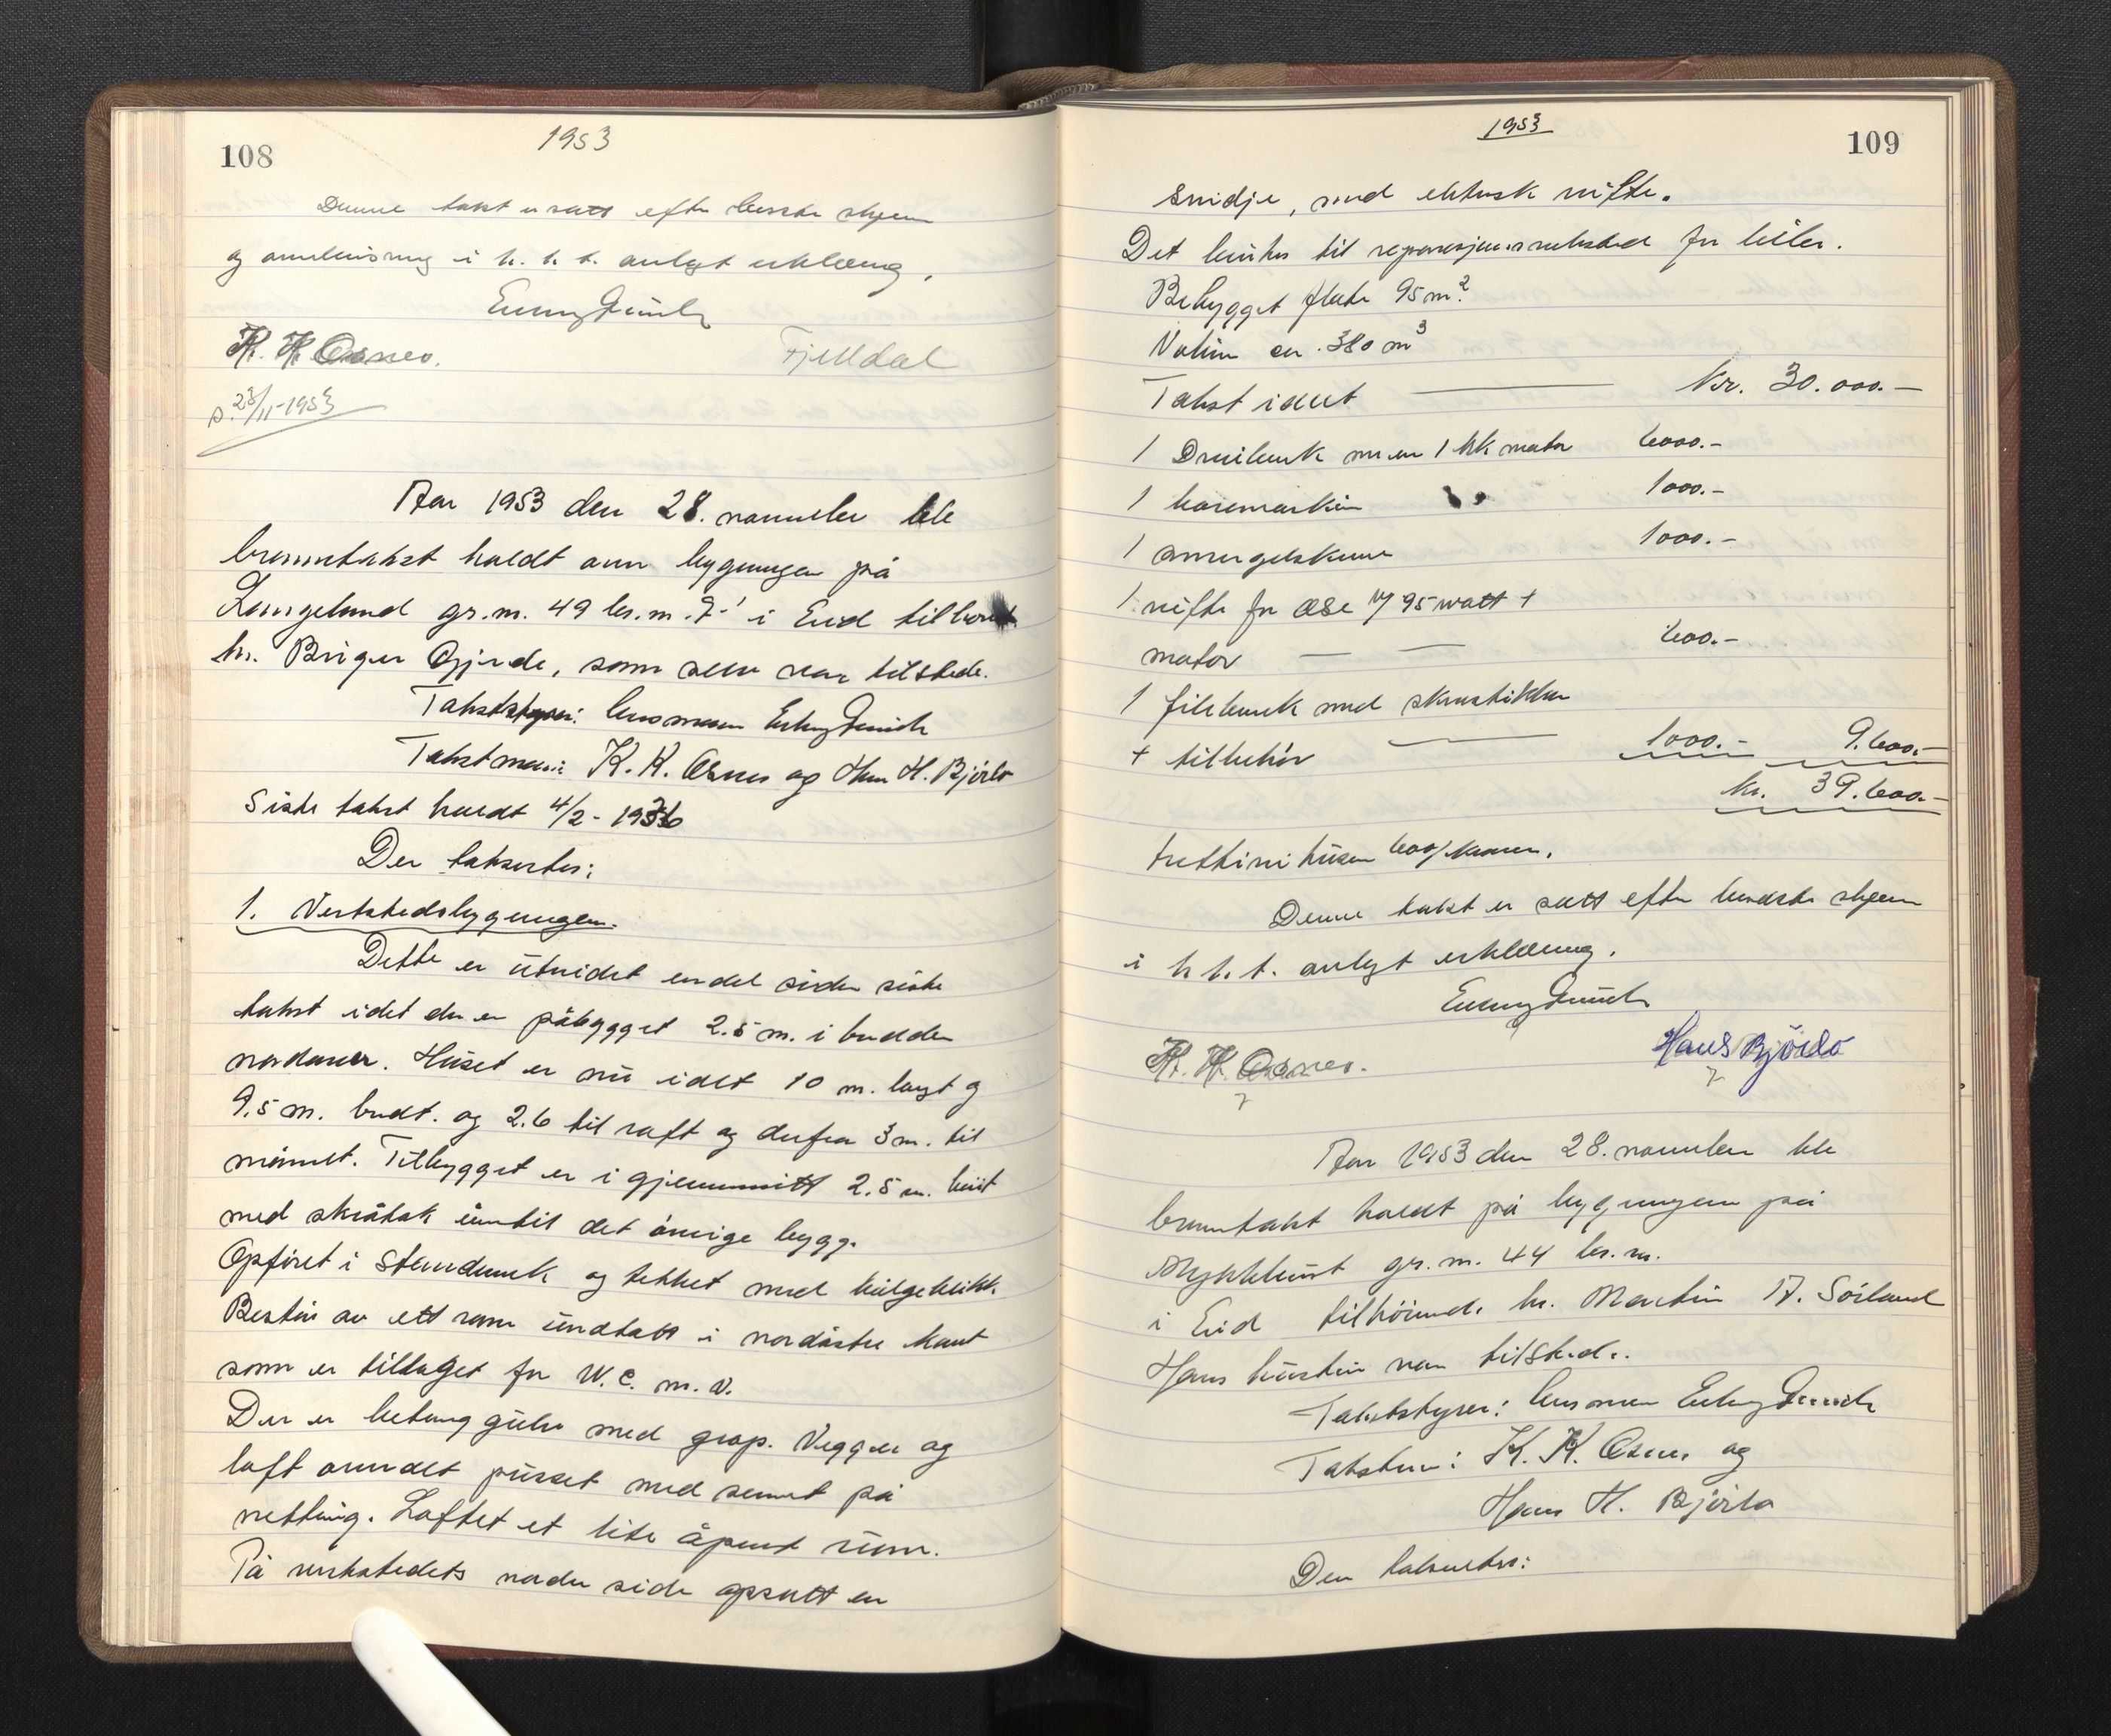 108
1953
Denne takst er satt efter beste skjønn
og anvendelse i h. h. t. avlagt erklæring.
K. K. Osnes.
Fjelldal
d. 23/11-1953
Aar 1953 den 28. november ble
branntakst holdt over bygningen på
Langeland gr.nr. 49 br.nr. i Eid tilhørende
hr. Birger Gjerde, som selv var tilstede.
Takststyrer: lensmann
Takstmenn: K. K. Osnes og Hans H. Bjørlo
Siste takst holdt 4/2-1936
Der takseres:
1. Verkstedsbygningen.
Dette er utvidet endel siden siste
takst idet der er påbygget 2.5 m. i bredden
Huset er nu idet 10 m. langt og
9.5 m. bredt. og 2.6 til raft og derfra 3 m. til
mønnet. Tilbygget er i gjennemsnitt 2.5 m. høit
med skråtak inntil det øvrige bygg.
Opføret i stenderverk og tekket med bølgeblikk.
Består av ett rom undtatt i nordøstre kant
som er tillaget for W.C. m.v.
Der er betonggulv med grop. Vegger og
loft anvendt pusset med sement på
netting. Loftet et lite åpent rum.
På verkstedets nordre side opsatt en
1953
109
smidje, med elektrisk vifte.
Det brukes til reparasjonsverksted for biler.
Bebygget flate 95 m².
Volum ca. 380 m³
Takst idet — Kr. 30.000.-
1 Dreiebenk m. en 1 hk motor 6000.-
1 boremaskin 1000.-
1 smergelskive 1000.-
1 vifte for esse m/ 95 watt +
motor — — 600.-
1 filebenk med skrustikker
+ tilbehør — 1000.- 9.600.-
kr. 39.600.-
trettini tusen 600/kroner.
Denne takst er satt efter bedste skjønn
i h. h. t. avlagt erklæring.
K. K. Osnes.
Hans Bjørlo
Aar 1953 den 28. november ble
branntakst holdt på bygningen på
Myklebust gr.nr. 44 br.nr.
i Eid tilhørende hr. Martin A. Sørland
Hans hustru var tilstede.
Takststyrer: lensmann
Takstmenn: K. K. Osnes og
Hans H. Bjørlo
Der takseres: